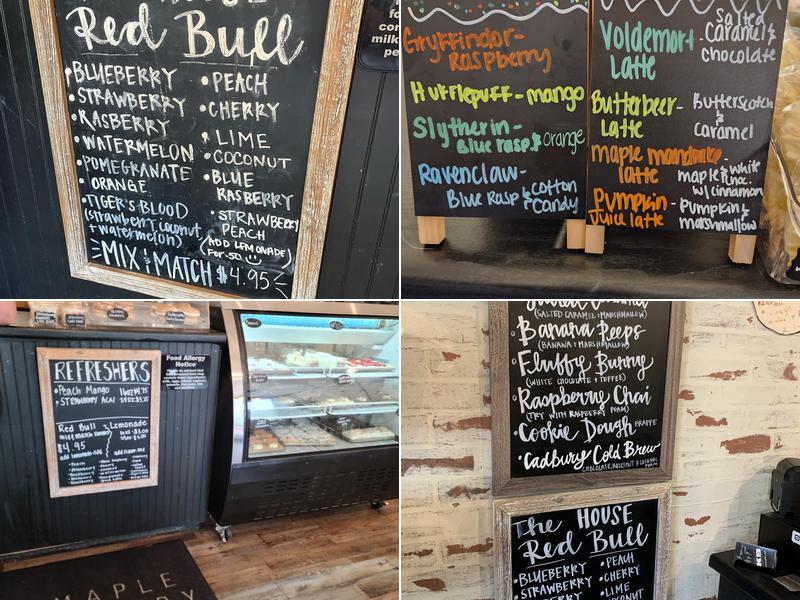 HOUSE
Red Bull
• BLUEBERRY
• STRAWBERRY
• RASBERRY
• WATERMELON
• POMEGRANATE
• ORANGE
• TIGER'S BLOOD
(strawberry, coconut
+ watermelon)
• PEACH
• CHERRY
• LIME
• COCONUT
• BLUE
RASPBERRY
• STRAWBERRY
PEACH
(ADD LEMONADE)
FOR .50
MIX & MATCH $4.95
Gryffindor-
Raspberry
Hufflepuff - mango
Slytherin -
Blue rasp & orange
Ravenclaw-
Blue Rasp & cotton
candy
Voldemort
Latte
- Salted
Caramel &
chocolate
Butterbeer-
Latte
Butterscotch
&
Caramel
maple mandrake-
latte
maple & white
choc.
w/ cinnamon
Pumpkin-
Juice latte
Pumpkin &
marshmallow
REFRESHERS
• Peach Mango
• STRAWBERRY ACAI
Red Bull
mix & match flavors
$4.95
Lemonade
Food Allergy
Notice
MAPLE
(SALTED CARAMEL & MARSHMALLOW)
• Banana Peeps
(BANANA & MARSHMALLOW)
• Fluffy Bunny
(WHITE CHOCOLATE & TOFFEE)
• Raspberry Chai
(TRY WITH RASPBERRY FOAM)
• Cookie Dough FRAPPE
• Cadbury Cold Brew
The HOUSE
Red Bull
• BLUEBERRY
• STRAWBERRY
• PEACH
• CHERRY
• LIME